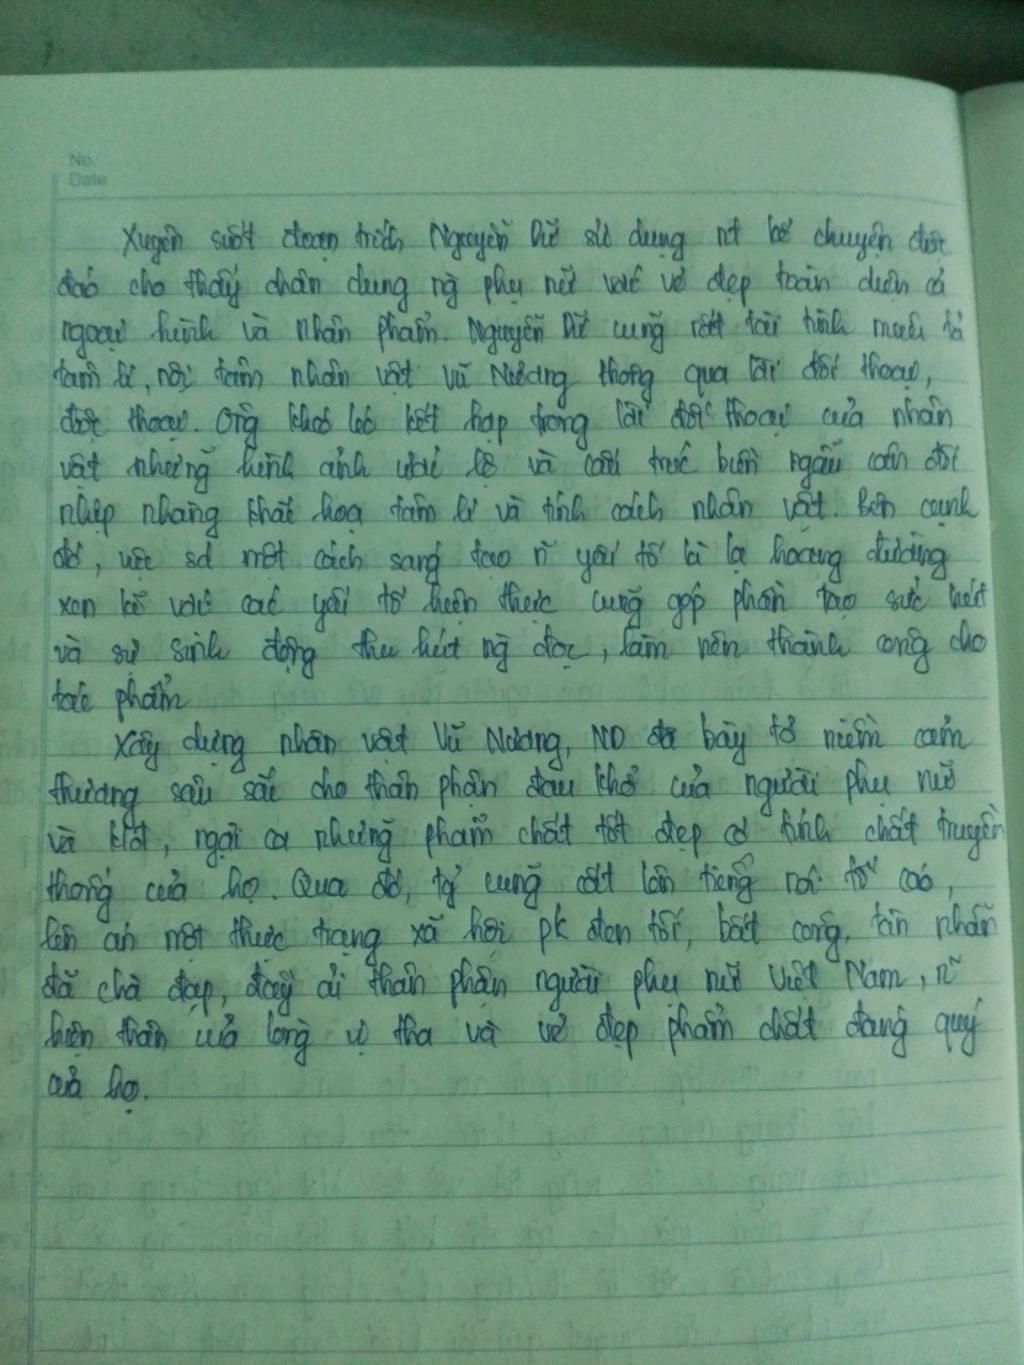 No.
Date
Xuyên suốt đoạn trích, Nguyễn Dữ sử dụng nt kể chuyện độc
đáo cho thấy chân dung ng phụ nữ với vẻ đẹp toàn diện cả
ngoại hình và nhân phẩm. Nguyễn Dữ cũng rất tài tình miêu tả
tâm lí, nội tâm nhân vật Vũ Nương thông qua lời đối thoại,
độc thoại. Ông khéo léo kết hợp trong lời đối thoại của nhân
vật những hình ảnh ước lệ và cấu trúc biền ngẫu cân đối
nhịp nhàng khắc họa tâm lí và tính cách nhân vật. Bên cạnh
đó, việc sd một cách sáng tạo n~ yếu tố kì lạ hoang đường
xen kẽ với các yếu tố hiện thực cũng góp phần tạo sức hút
và sự sinh động thu hút ng đọc, làm nên thành công cho
tác phẩm
Xây dựng nhân vật Vũ Nương, ND đã bày tỏ niềm cảm
thương sâu sắc cho thân phận đau khổ của người phụ nữ
và ngợi ca những phẩm chất tốt đẹp có tính chất truyền
thống của họ. Qua đó, tg cũng cất lên tiếng nói tố cáo,
lên án một thực trạng xã hội pk đen tối, bất công, tàn nhẫn
đã chà đạp, đày ải thân phận người phụ nữ Việt Nam, n~
hiện thân của lòng vị tha và vẻ đẹp phẩm chất đáng quý
của họ.